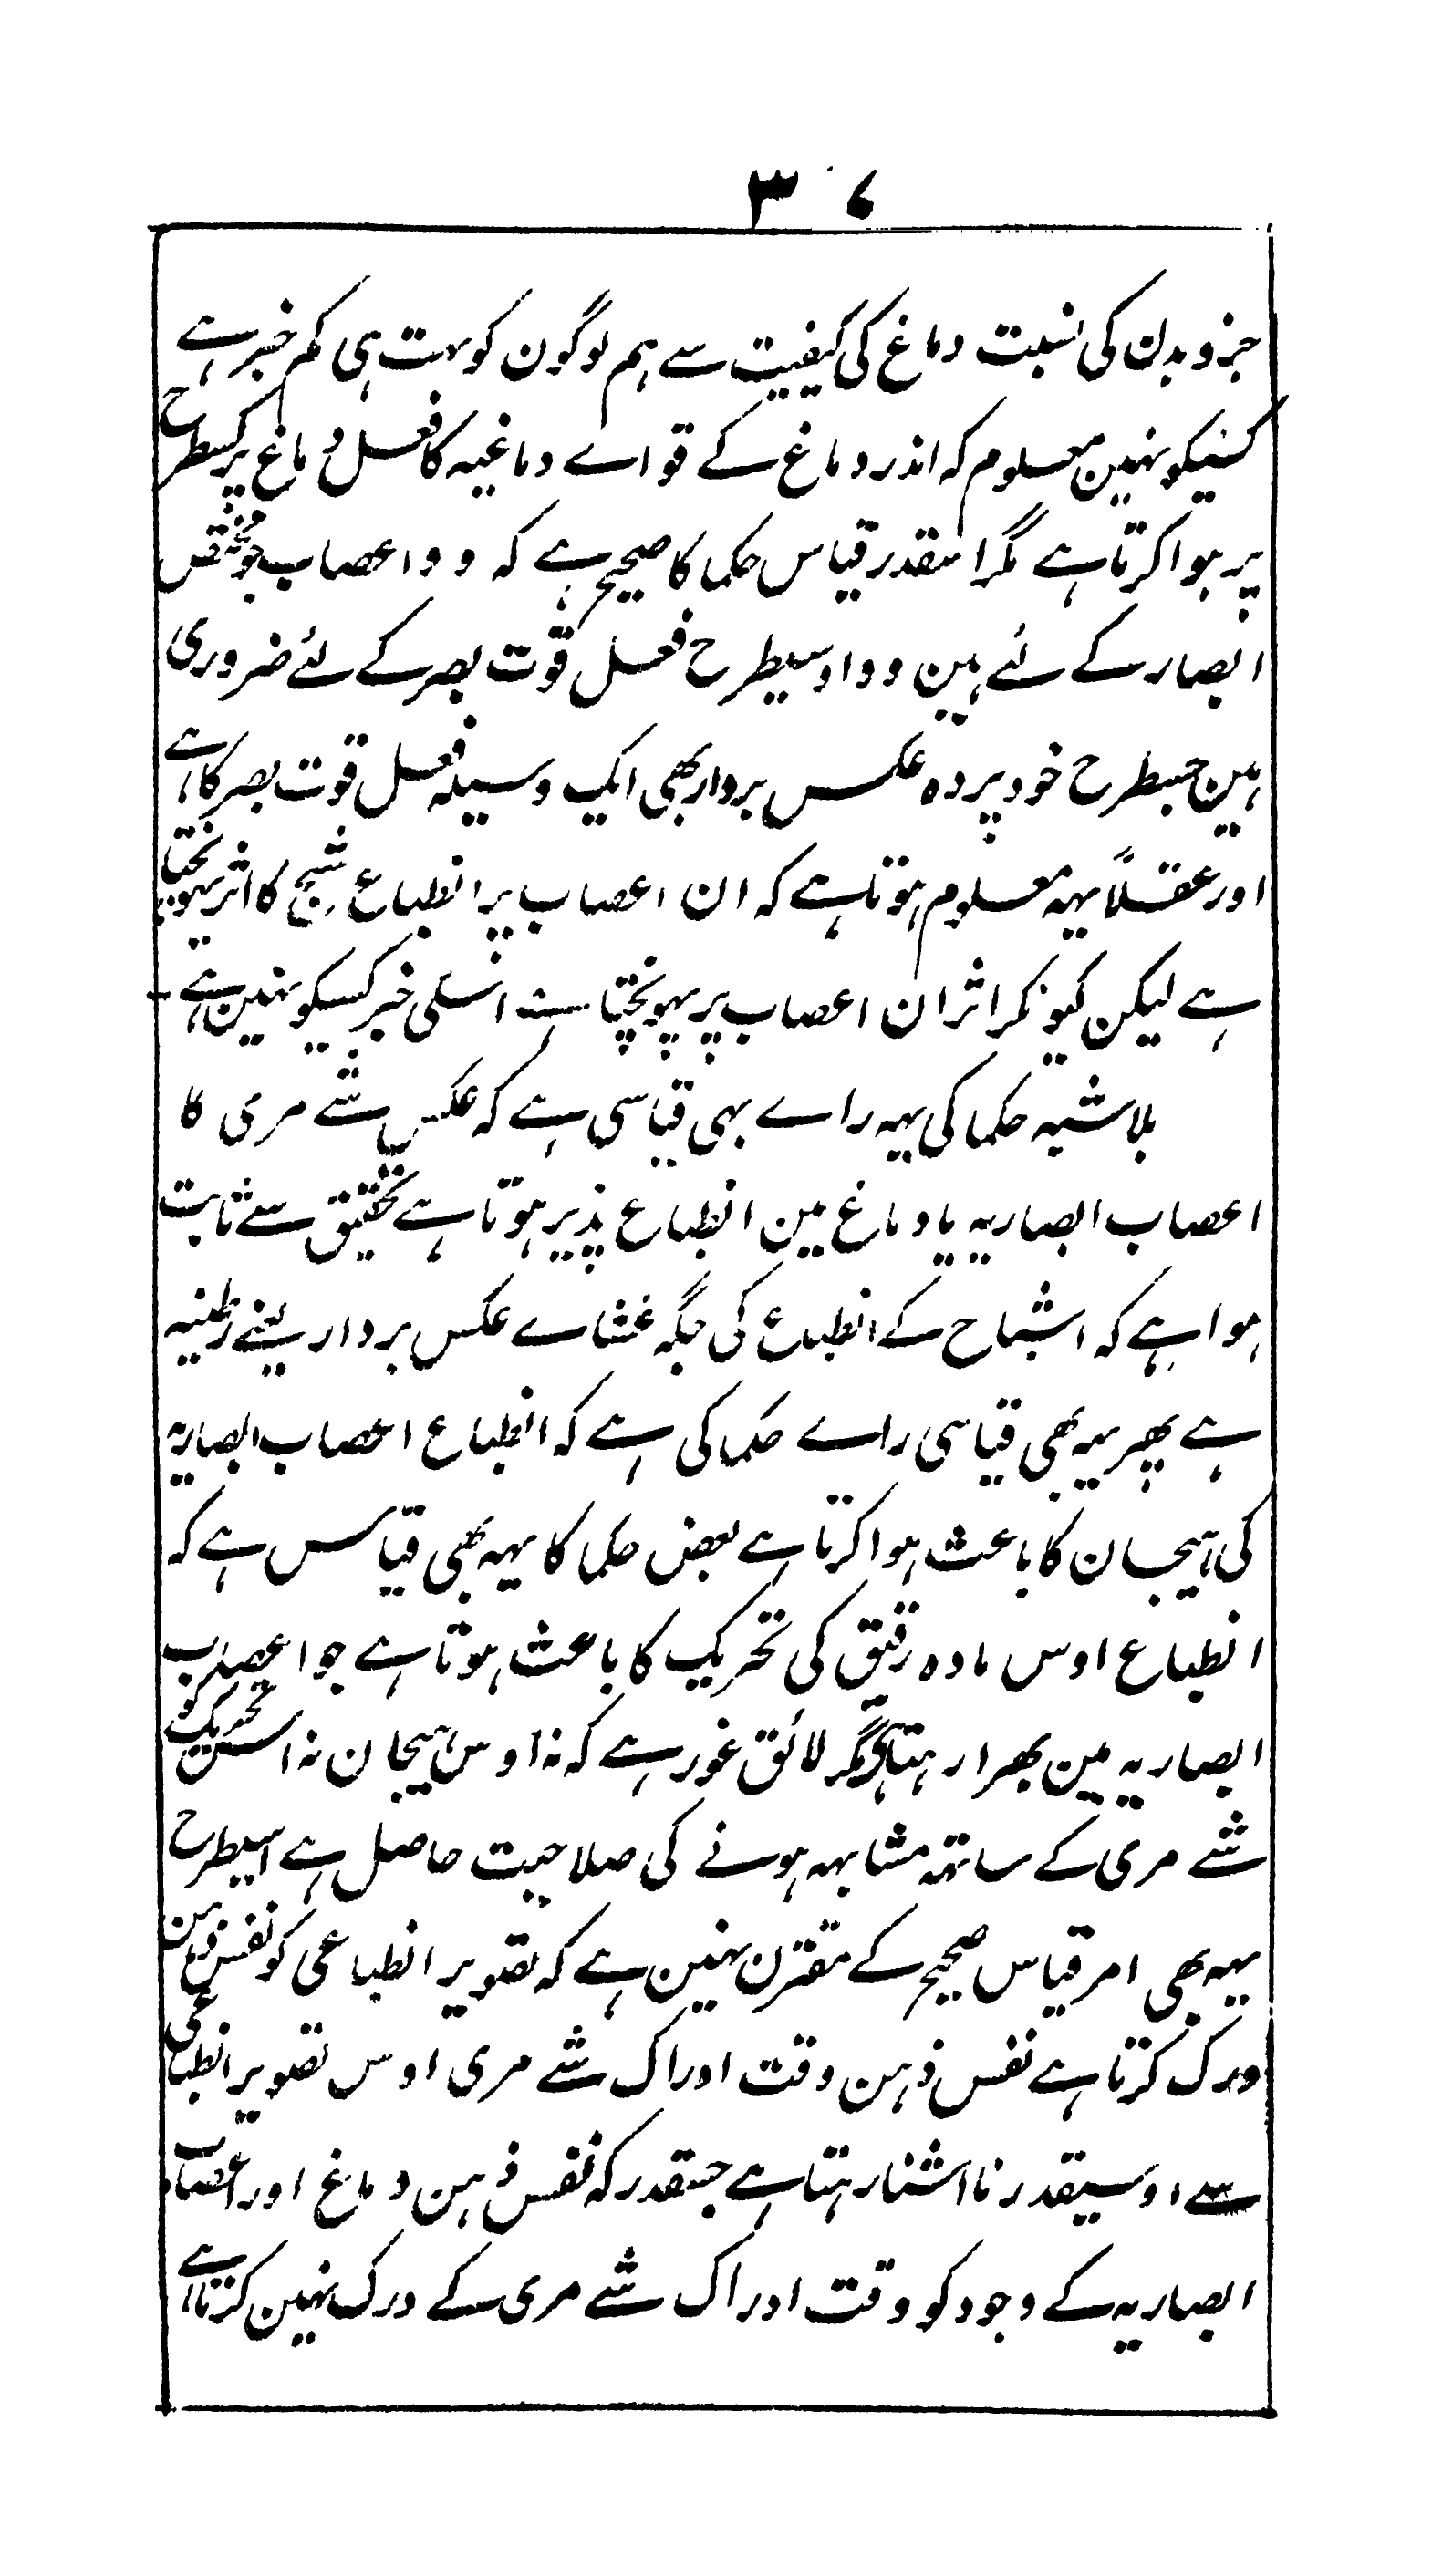 ۳۷
جزو بدن کی نسبت دماغ کی کیفیت سے ہم لوگون کو بہت ہی کم خبر ہے
کسیکو نہین معلوم کہ اندر دماغ کے قواے دماغیہ کا فعل دماغ پر کسطرح
پر ہوا کرتا ہے مگر استقدر قیاس حکما کا صحیح ہے کہ وو اعصاب جو مختص
ابصار کے لئے ہین وو اوسیطرح فعل قوّت بصر کے لئے ضروری
ہین جسطرح خود پردہ عکس بردار بھی ایک وسیلہ فعل قوت بصر کا ہے
اور عقلاً یہہ معلوم ہوتا ہے کہ ان اعصاب پر انطباع شبح کا اثر پہونچتا
ہے لیکن کیونکر اثر ان اعصاب پر پہونچتا ہے اسکی خبر کسیکو نہین ہے۔
بلاشبہ حکما کی یہہ راے بہی قیاسی ہے کہ عکس شے مری کا
اعصاب ابصاریہ یا دماغ مین انطباع پذیر ہوتا ہے تحقیق سے ثابت
ہوا ہے کہ اشباح کے انطباع کی جگہ غشاے عکس بردار یعنے رطنیہ
ہے پھر یہہ بھی قیاسی راے حکما کی ہے کہ انطباع اعصاب ابصاریہ
کی ہیجان کا باعث ہوا کرتا ہے بعض حکما کا یہہ بھی قیاس ہے کہ
انطباع اوس مادہ رقیق کی تحریک کا باعث ہوتا ہے جو اعصاب
ابصاریہ مین بھرا رہتا ہی مگر لائق غور ہے کہ نہ اوس ہیجان نہ اس تحریک کو
شے مری کے ساتھہ مشابہہ ہونے کی صلاحیت حاصل ہے اسیطرح
یہہ بھی امر قیاس صحیح کے مقترن نہین ہے کہ تصویر انطباعی کو نفس ذہن
درک کرتا ہے نفس ذہن وقت ادراک شے مری اوس تصویر انطباعی
سے اوسیقدر نااشنا رہتا ہے جسقدر کہ نفس ذہن دماغ اور اعصاب
ابصاریہ کے وجود کو وقت ادراک شے مری کے درک نہین کرتا ہے